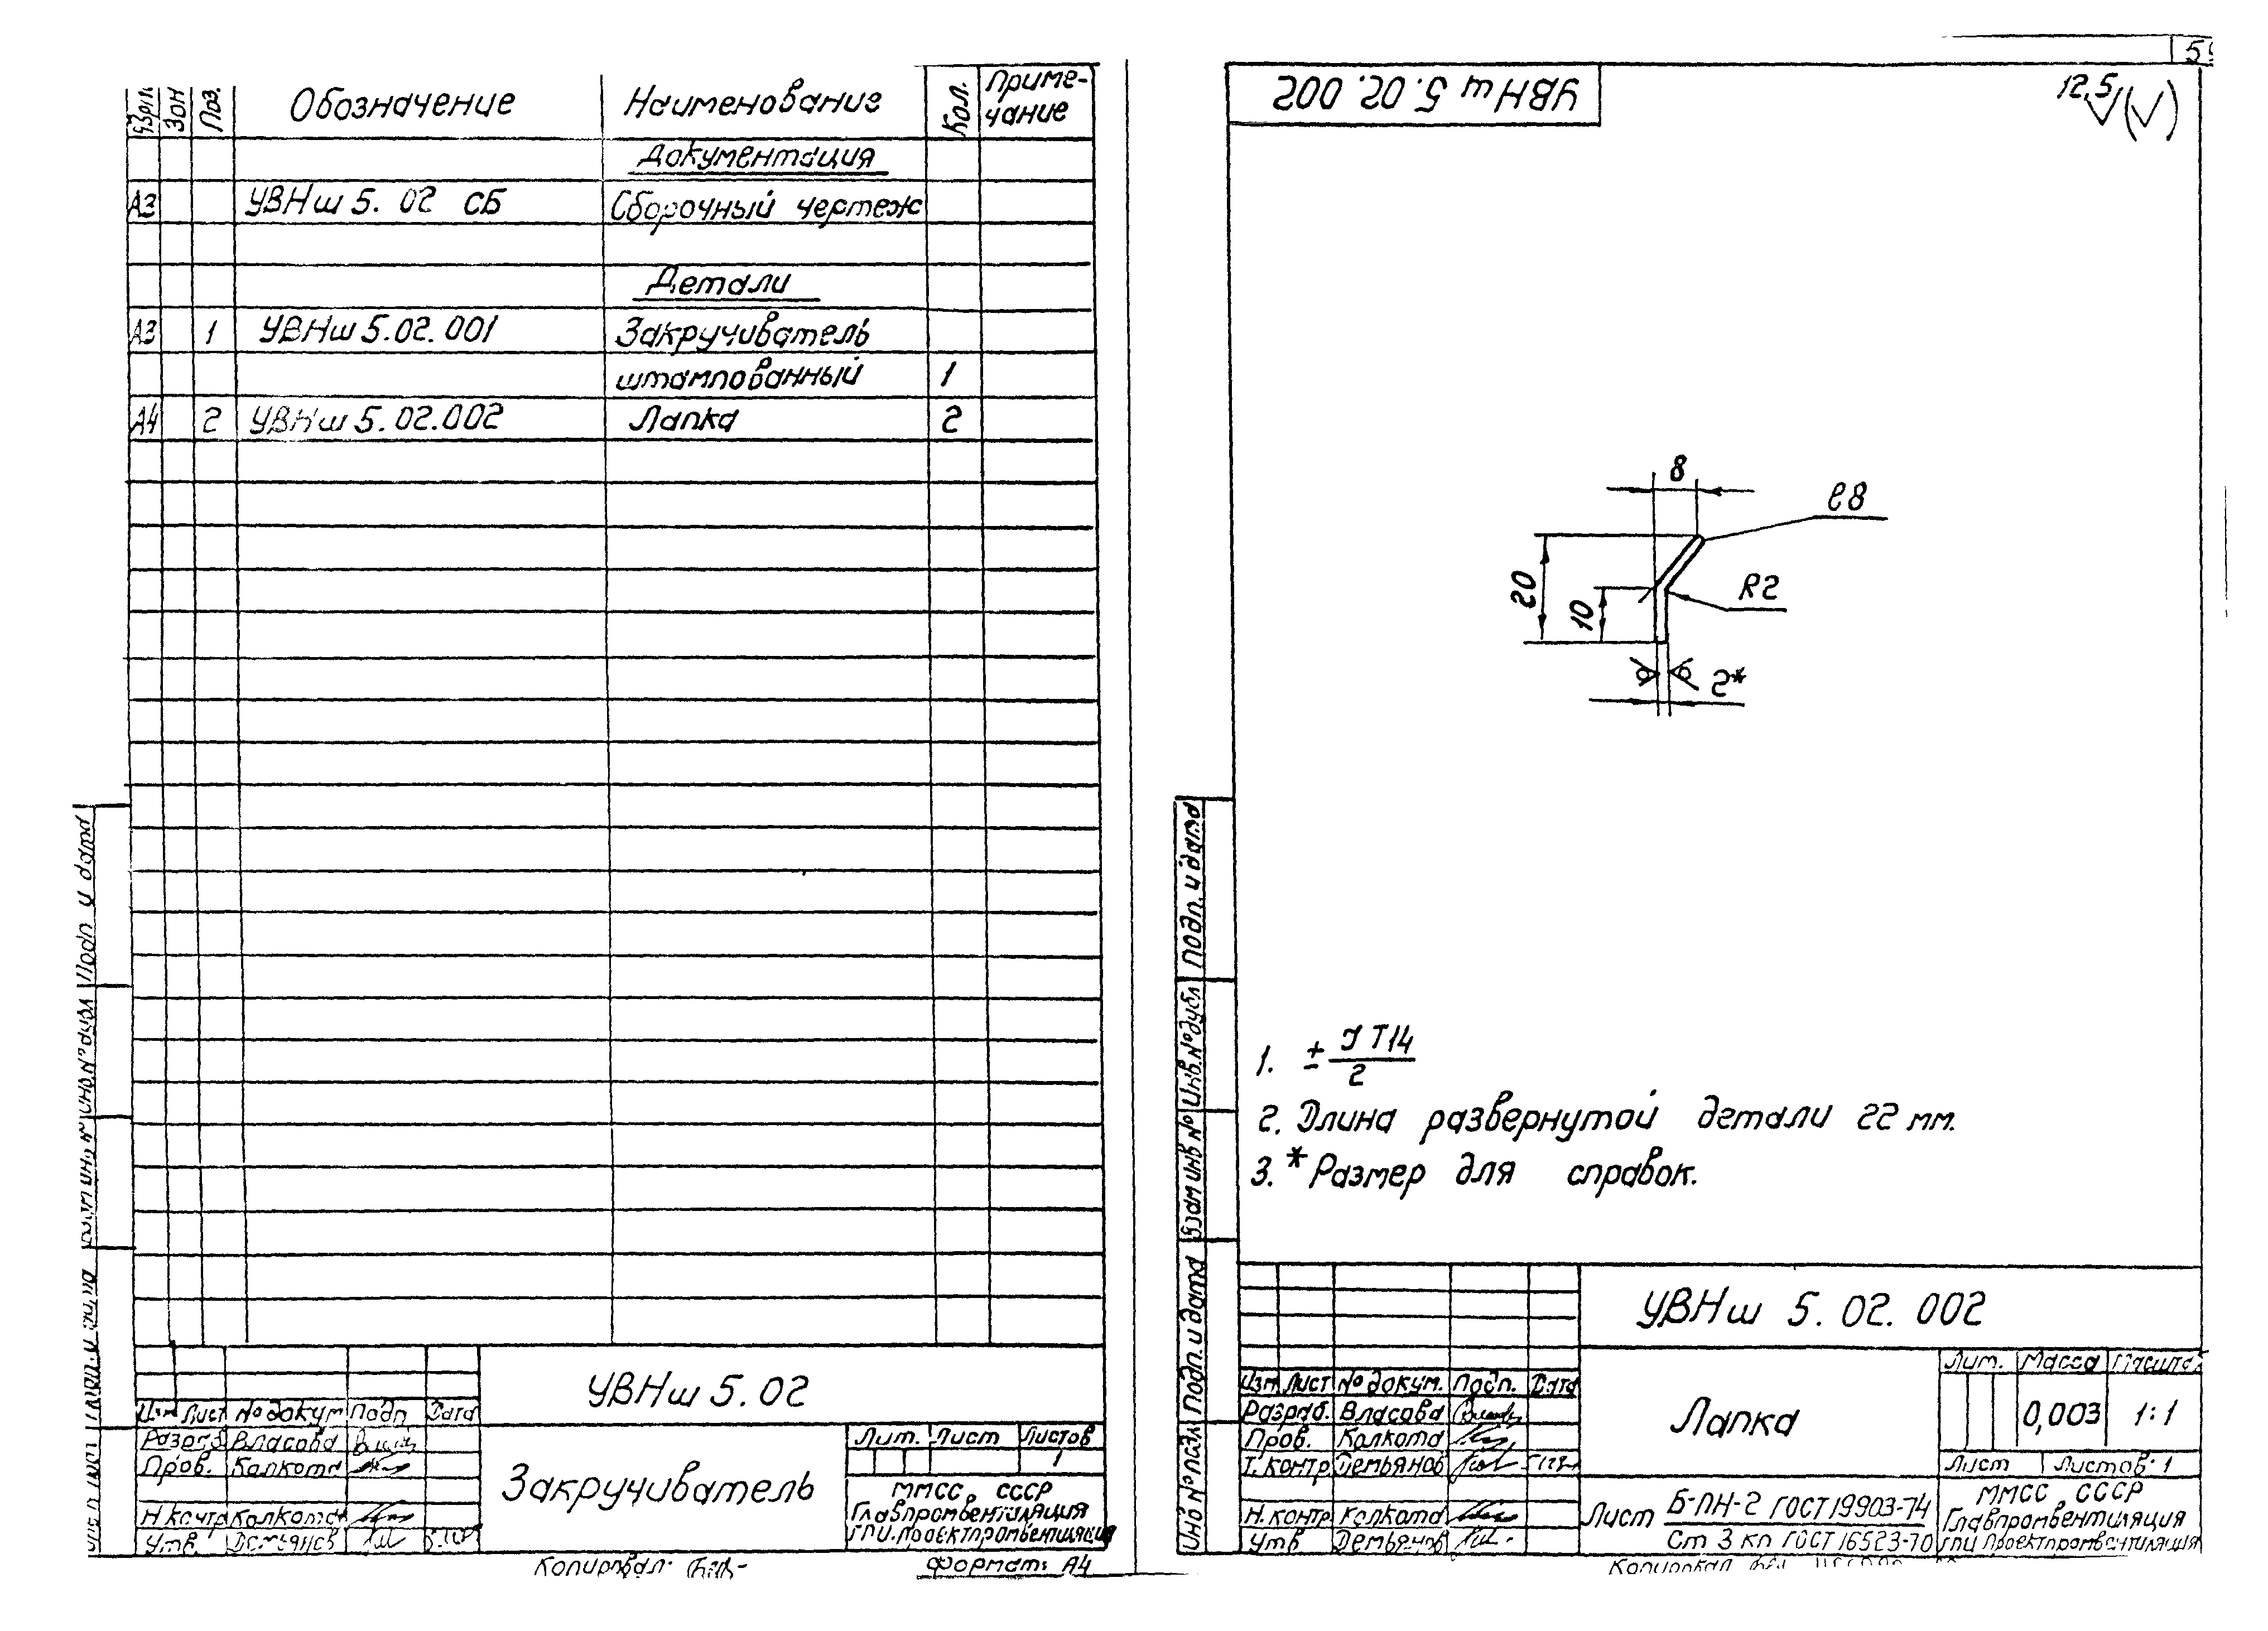 Зон Поз. Обозначение Наименование Кол. Приме-
чание
Документация
А3 УВНш 5. 02 СБ Сборочный чертеж
Детали
А3 1 УВНш 5.02.001 Закручиватель
штампованный 1
А4 2 УВНш 5.02.002 Лапка 2
Подп и дата
УВНш 5.02
Изм Лист № докум Подп Дата
Разраб Власова
Пров. Калкота
Н контр Калкота
Утв. Демьянов
Закручиватель
Лит. Лист Листов
1
ММСС СССР
Главпромвентиляция
ГПИ Проектпромвентиляция
Копировал:
Формат: А4
УВНш 5.02.002
12,5 (√)
8
e8
20
10
R2
2*
1. ± JT14
2
2. Длина развернутой детали 22 мм.
3. * Размер для справок.
Подп. и дата
Инв. № дубл
Взам инв №
Подп. и дата
Инв № подл
УВНш 5. 02. 002
Изм Лист № докум. Подп. Дата
Разраб. Власова
Пров. Калкота
Т. контр Демьянов
Н. контр Калкота
Утв Демьянов
Лапка
Лит. Масса Масштаб
0,003 1:1
Лист Листов 1
Лист Б-ПН-2 ГОСТ 19903-74
Ст 3 кп ГОСТ 16523-70
ММСС СССР
Главпромвентиляция
ГПИ Проектпромвентиляция
Копировал